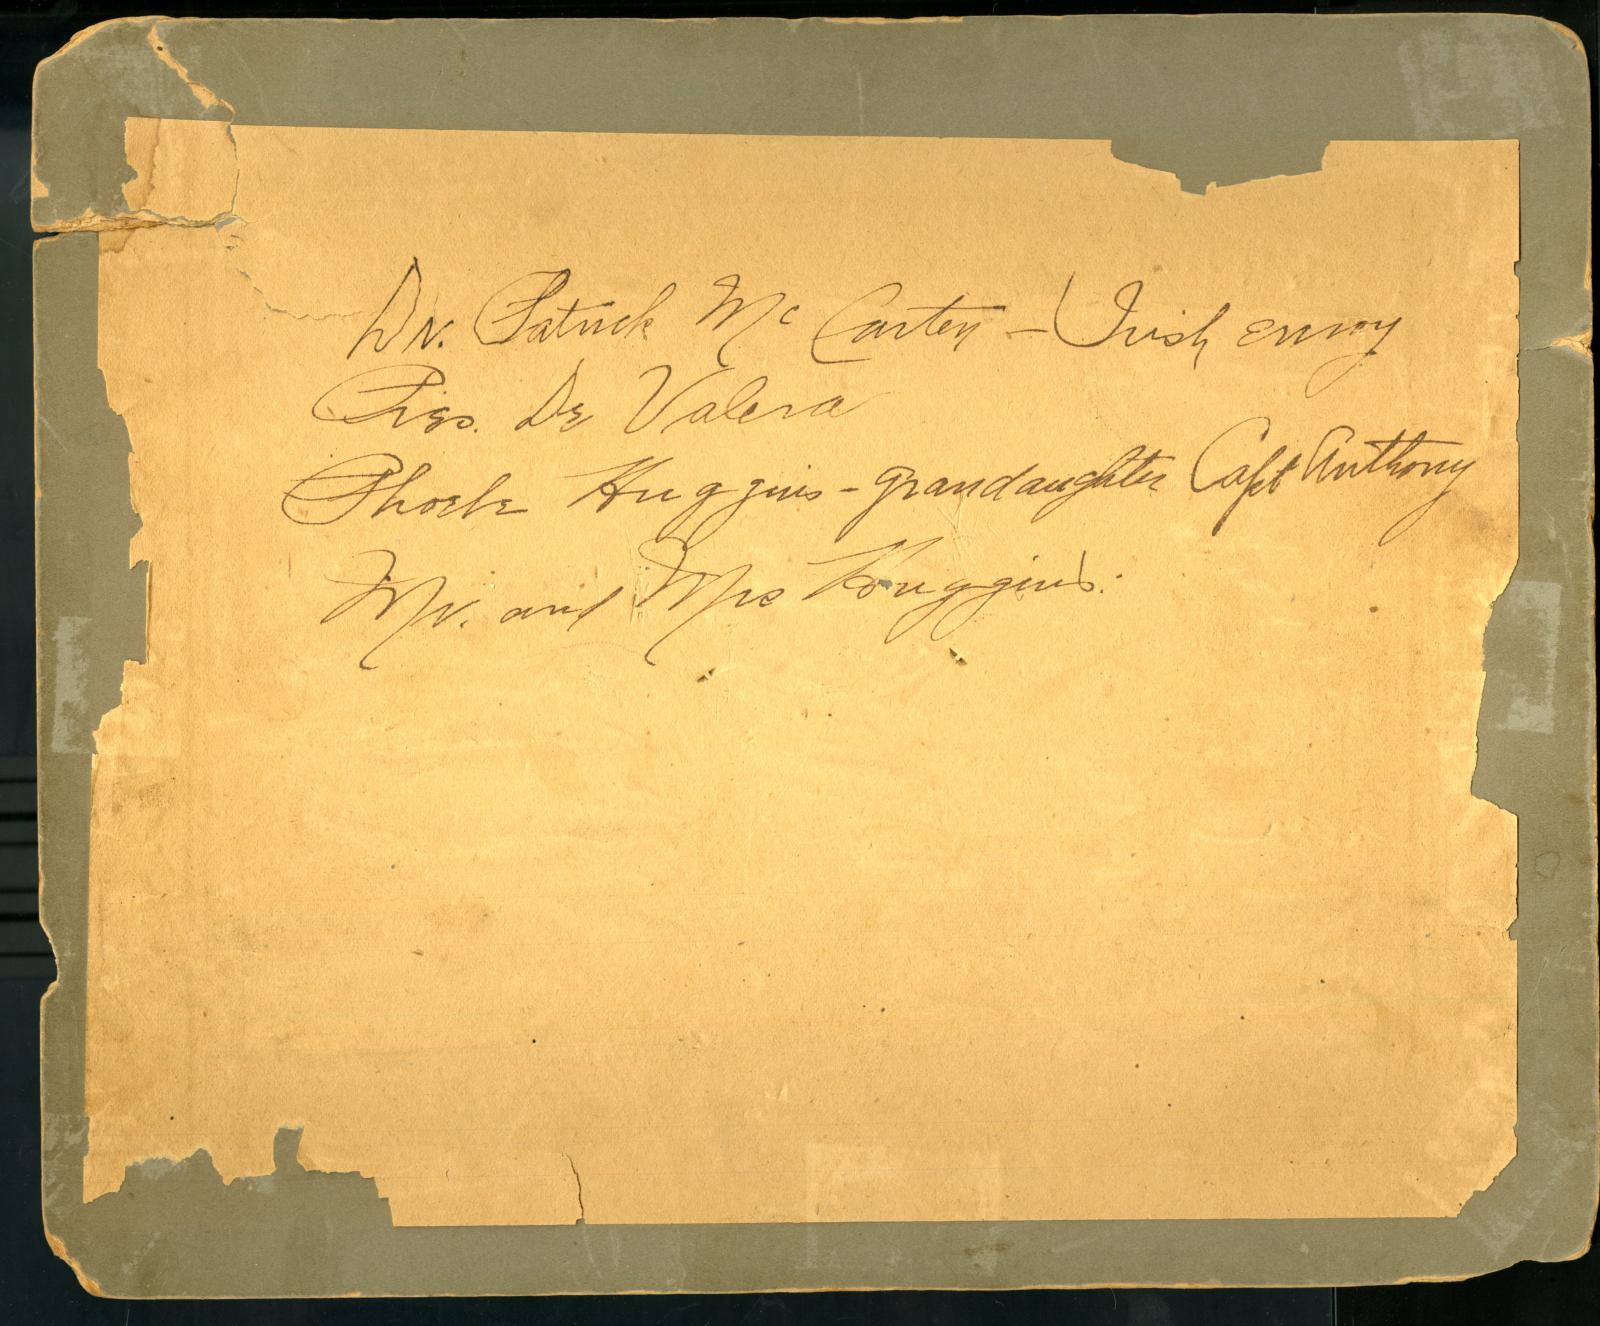 Dr. Patrick McCarten - Irish envoy
Pres. De Valera
Phoebe Huggins - grandaughter Capt Anthony
Mr. and Mrs Huggins.